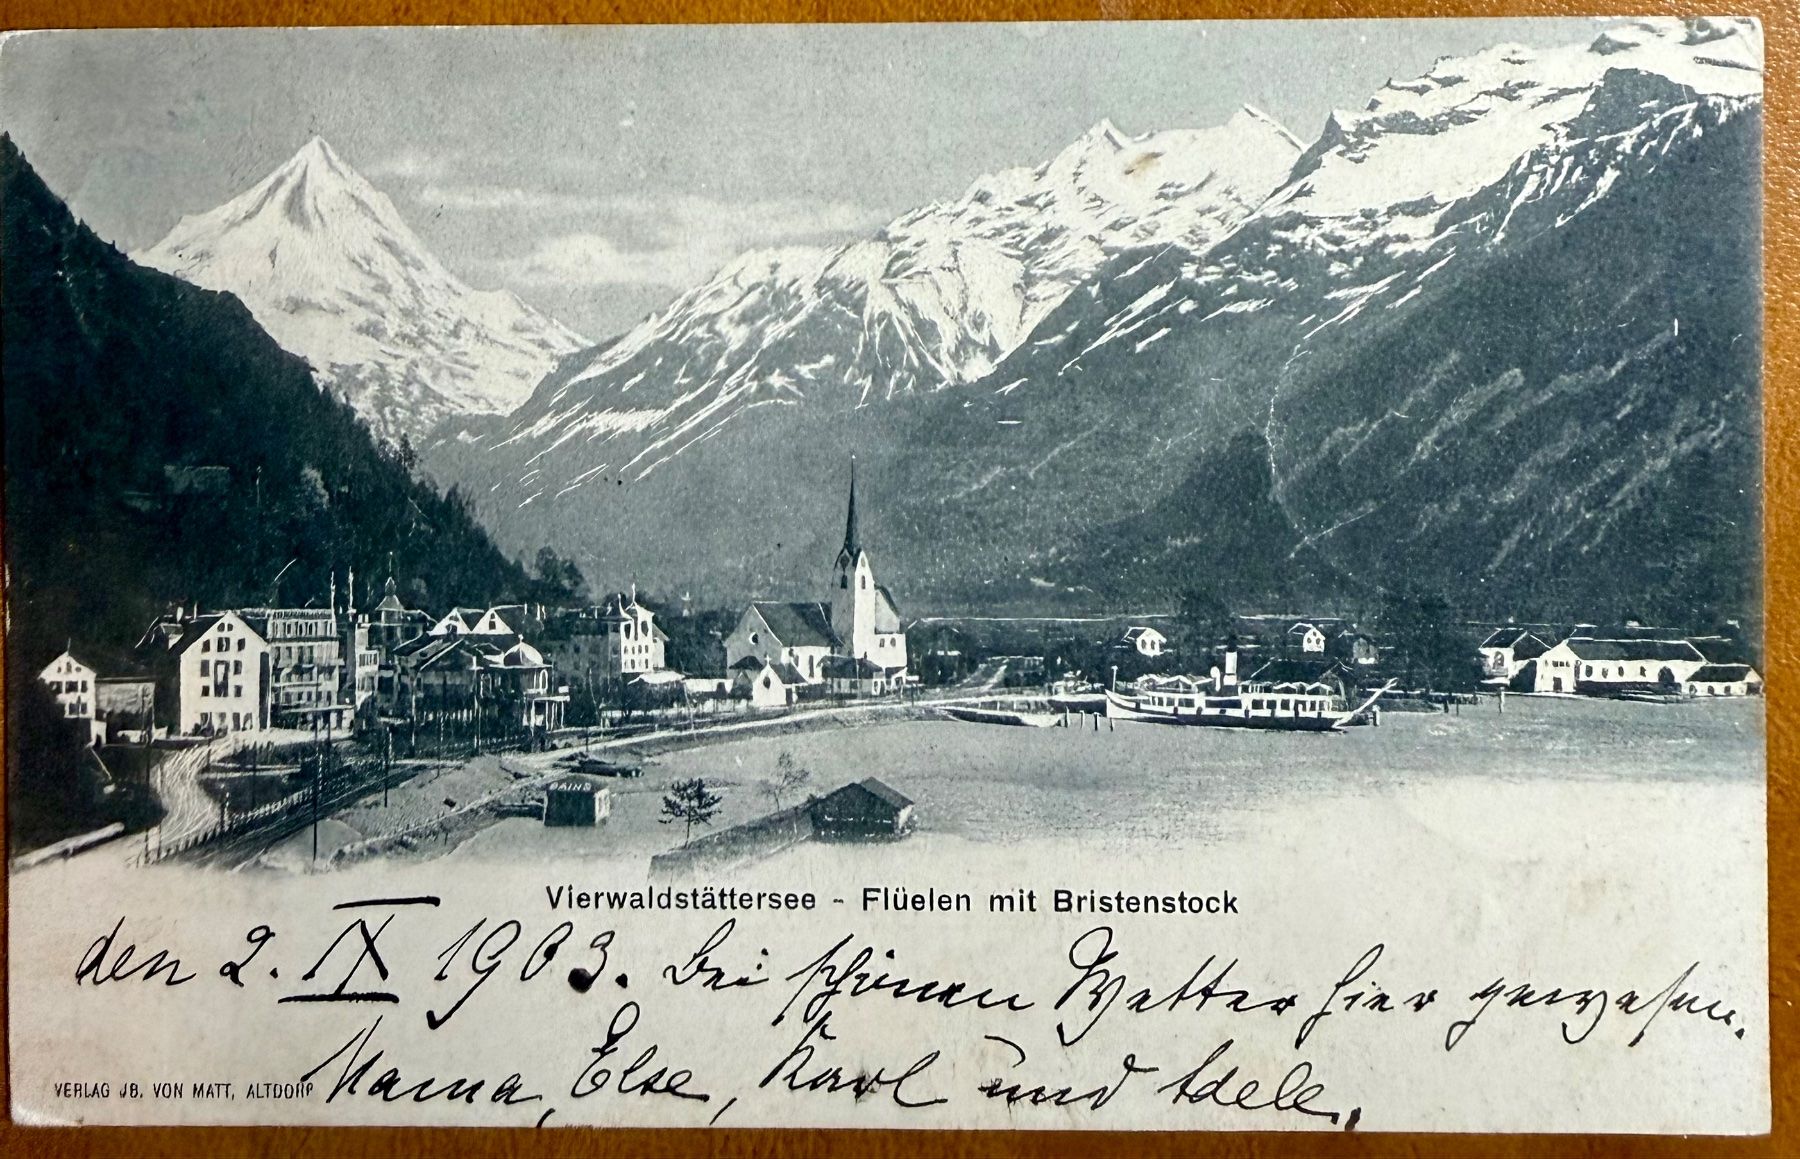 BAINS
Vierwaldstättersee - Flüelen mit Bristenstock
den 2. IX 1903. Bei schönen Wetter hier gewesen.
Mama, Else, Karl und Adele.
VERLAG JB. VON MATT, ALTDORF